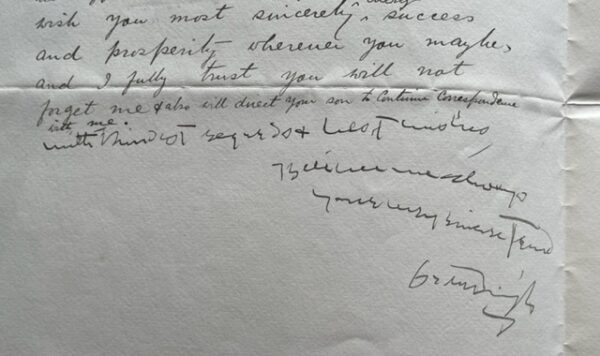 wish you most sincerely, success
and prosperity wherever you maybe,
and I fully trust you will not
forget me & also will direct your son to Continue Correspondence
with me.
with kindest regards & best wishes
Believe me always
your very sincere friend